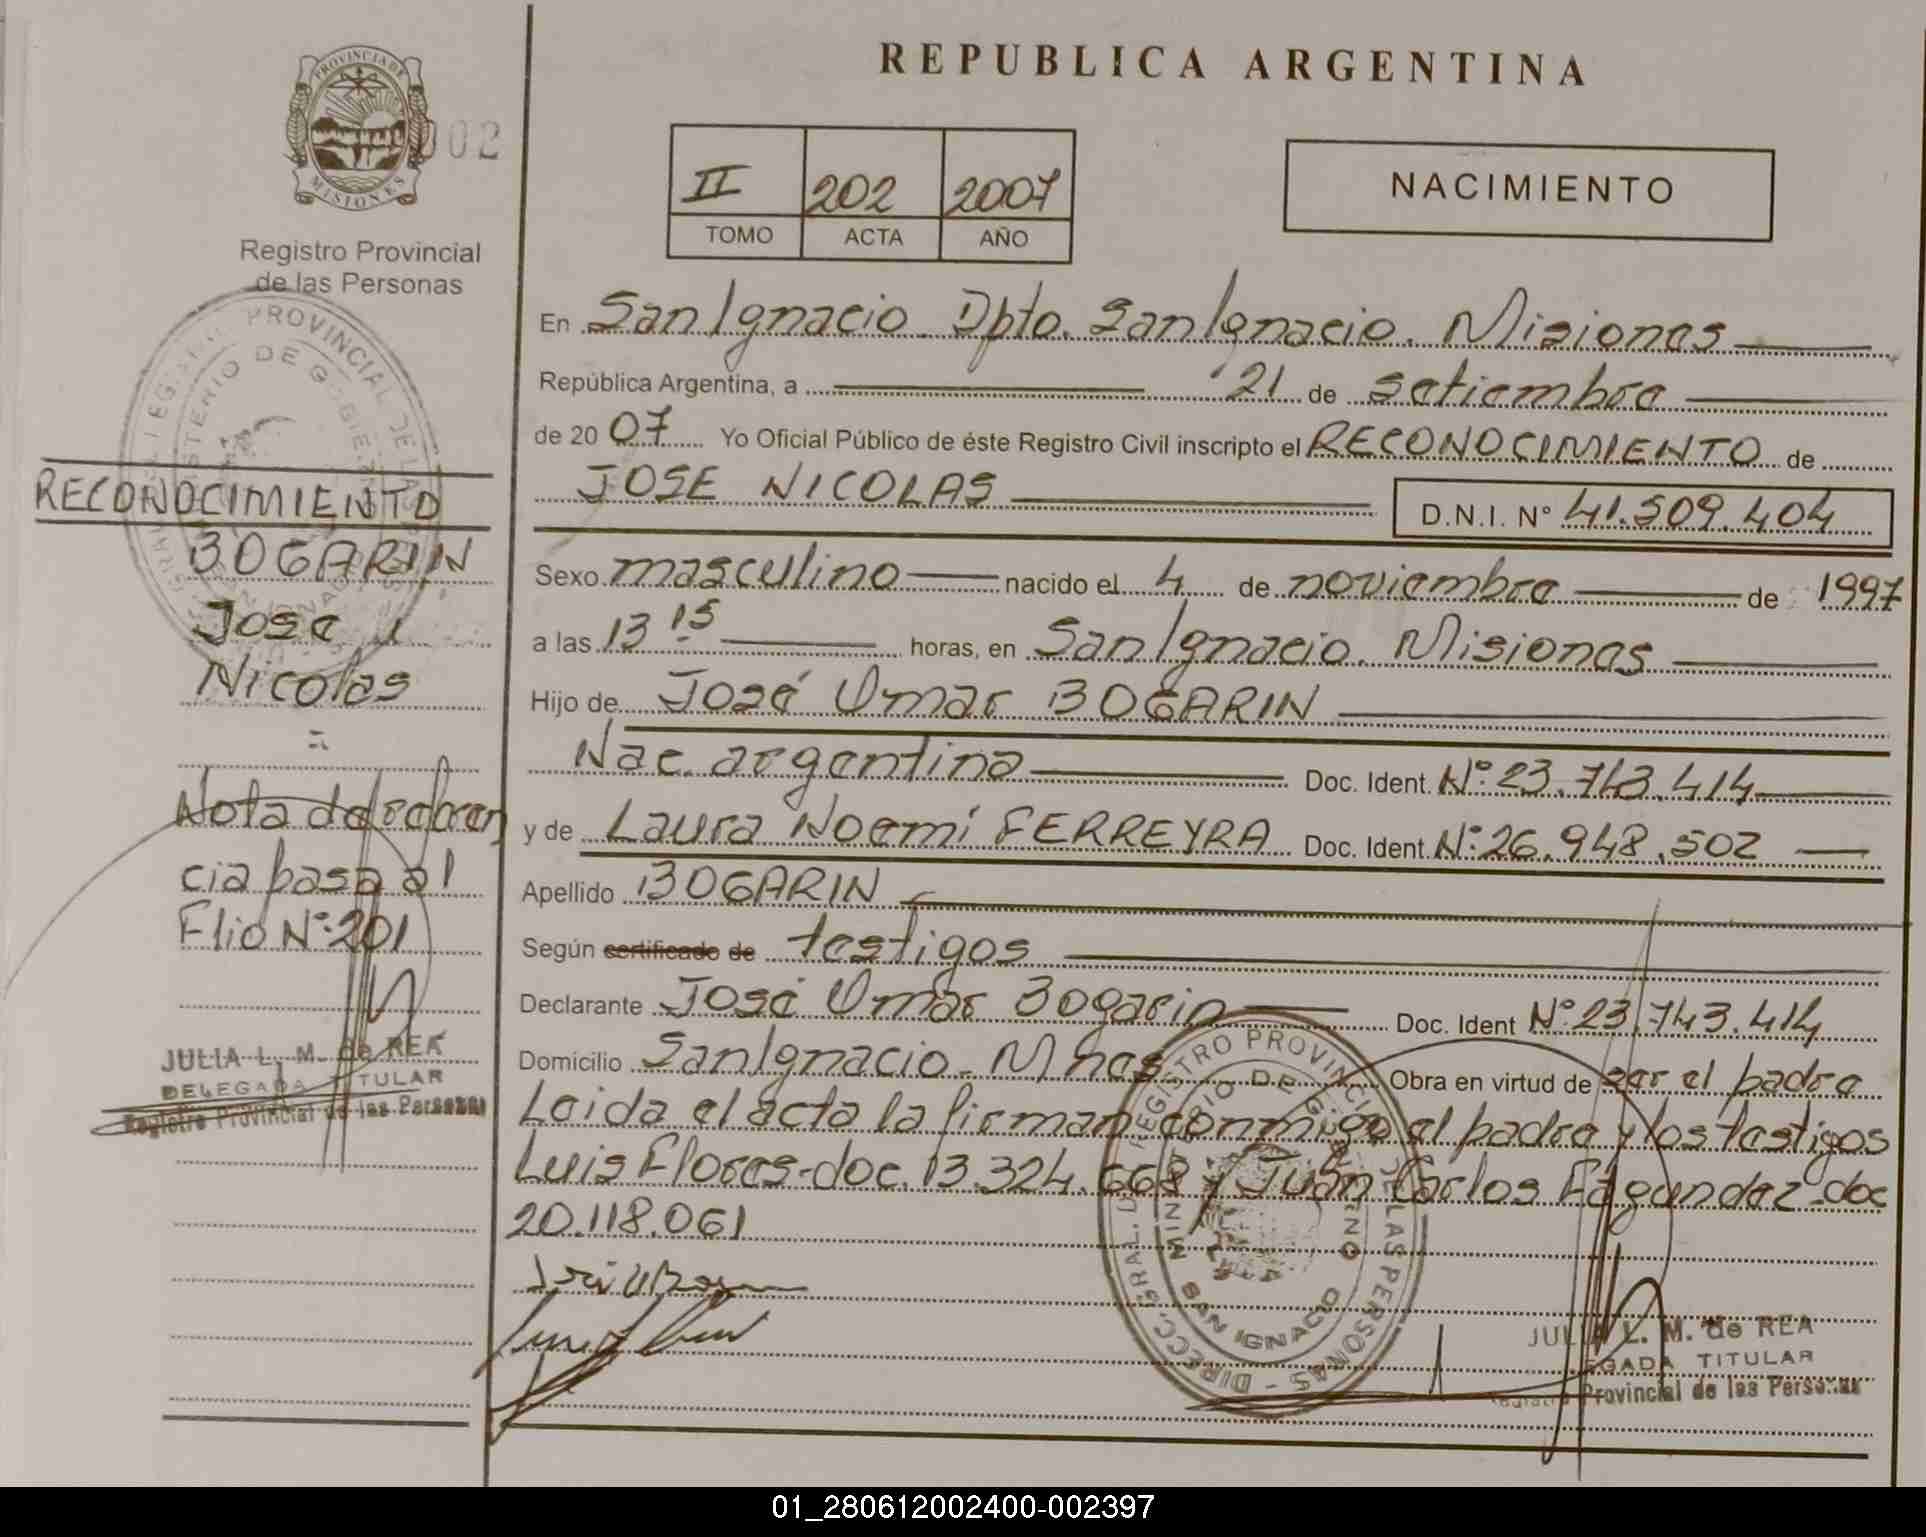 PROVINCIA DE
MISIONES
002
Registro Provincial
de las Personas
RECONOCIMIENTO
BOGARIN
Jose
Nicolas
Nota de referen
cia pasa al
Flio Nº 201
JULIA L. M. de REA
DELEGADA TITULAR
Registro Provincial de las Personas
REPUBLICA ARGENTINA
II 202 2007
TOMO ACTA AÑO
NACIMIENTO
En San Ignacio. Dpto. San Ignacio. Misiones
República Argentina, a 21 de setiembre
de 20 07 Yo Oficial Público de éste Registro Civil inscripto el RECONOCIMIENTO de
JOSE NICOLAS D.N.I. Nº 41.509.404
Sexo masculino nacido el 4 de noviembre de 1997
a las 13 15 horas, en San Ignacio. Misiones
Hijo de José Omar BOGARIN
Nac. argentina Doc. Ident. Nº 23.743.414
y de Laura Noemí FERREYRA Doc. Ident. Nº 26.948.502
Apellido BOGARIN
Según certificado de testigos
Declarante José Omar Bogarin Doc. Ident Nº 23.743.414
Domicilio San Ignacio - Mnes Obra en virtud de ser el padre
Leida el acta la firman conmigo el padre y los testigos
Luis Flores - doc. 13.324.668 y Juan Carlos Fagundez - doc
20.118.061
DIRECC. GRAL. DEL REGISTRO PROVINCIAL DE LAS PERSONAS
MINISTERIO DE GOBIERNO
SAN IGNACIO
JULIA L. M. de REA
DELEGADA TITULAR
Registro Provincial de las Personas
01_280612002400-002397